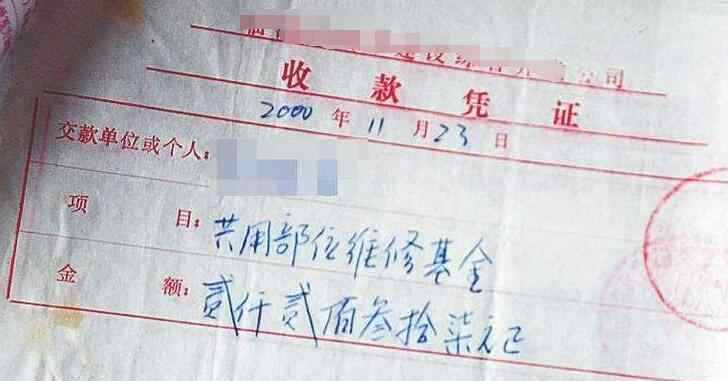 建设综合开 公司
收款凭证
2000年11月23日
交款单位或个人：
项目：共用部位维修基金
金额：贰仟贰佰叁拾柒元正